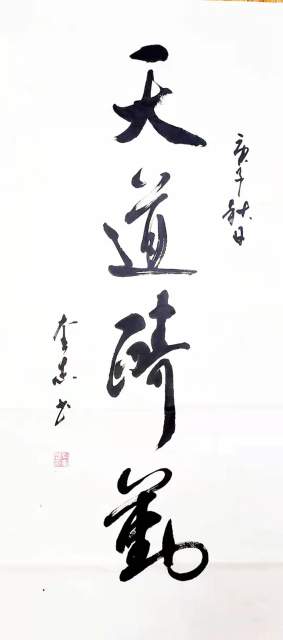 庚子秋日
天道酬勤
书